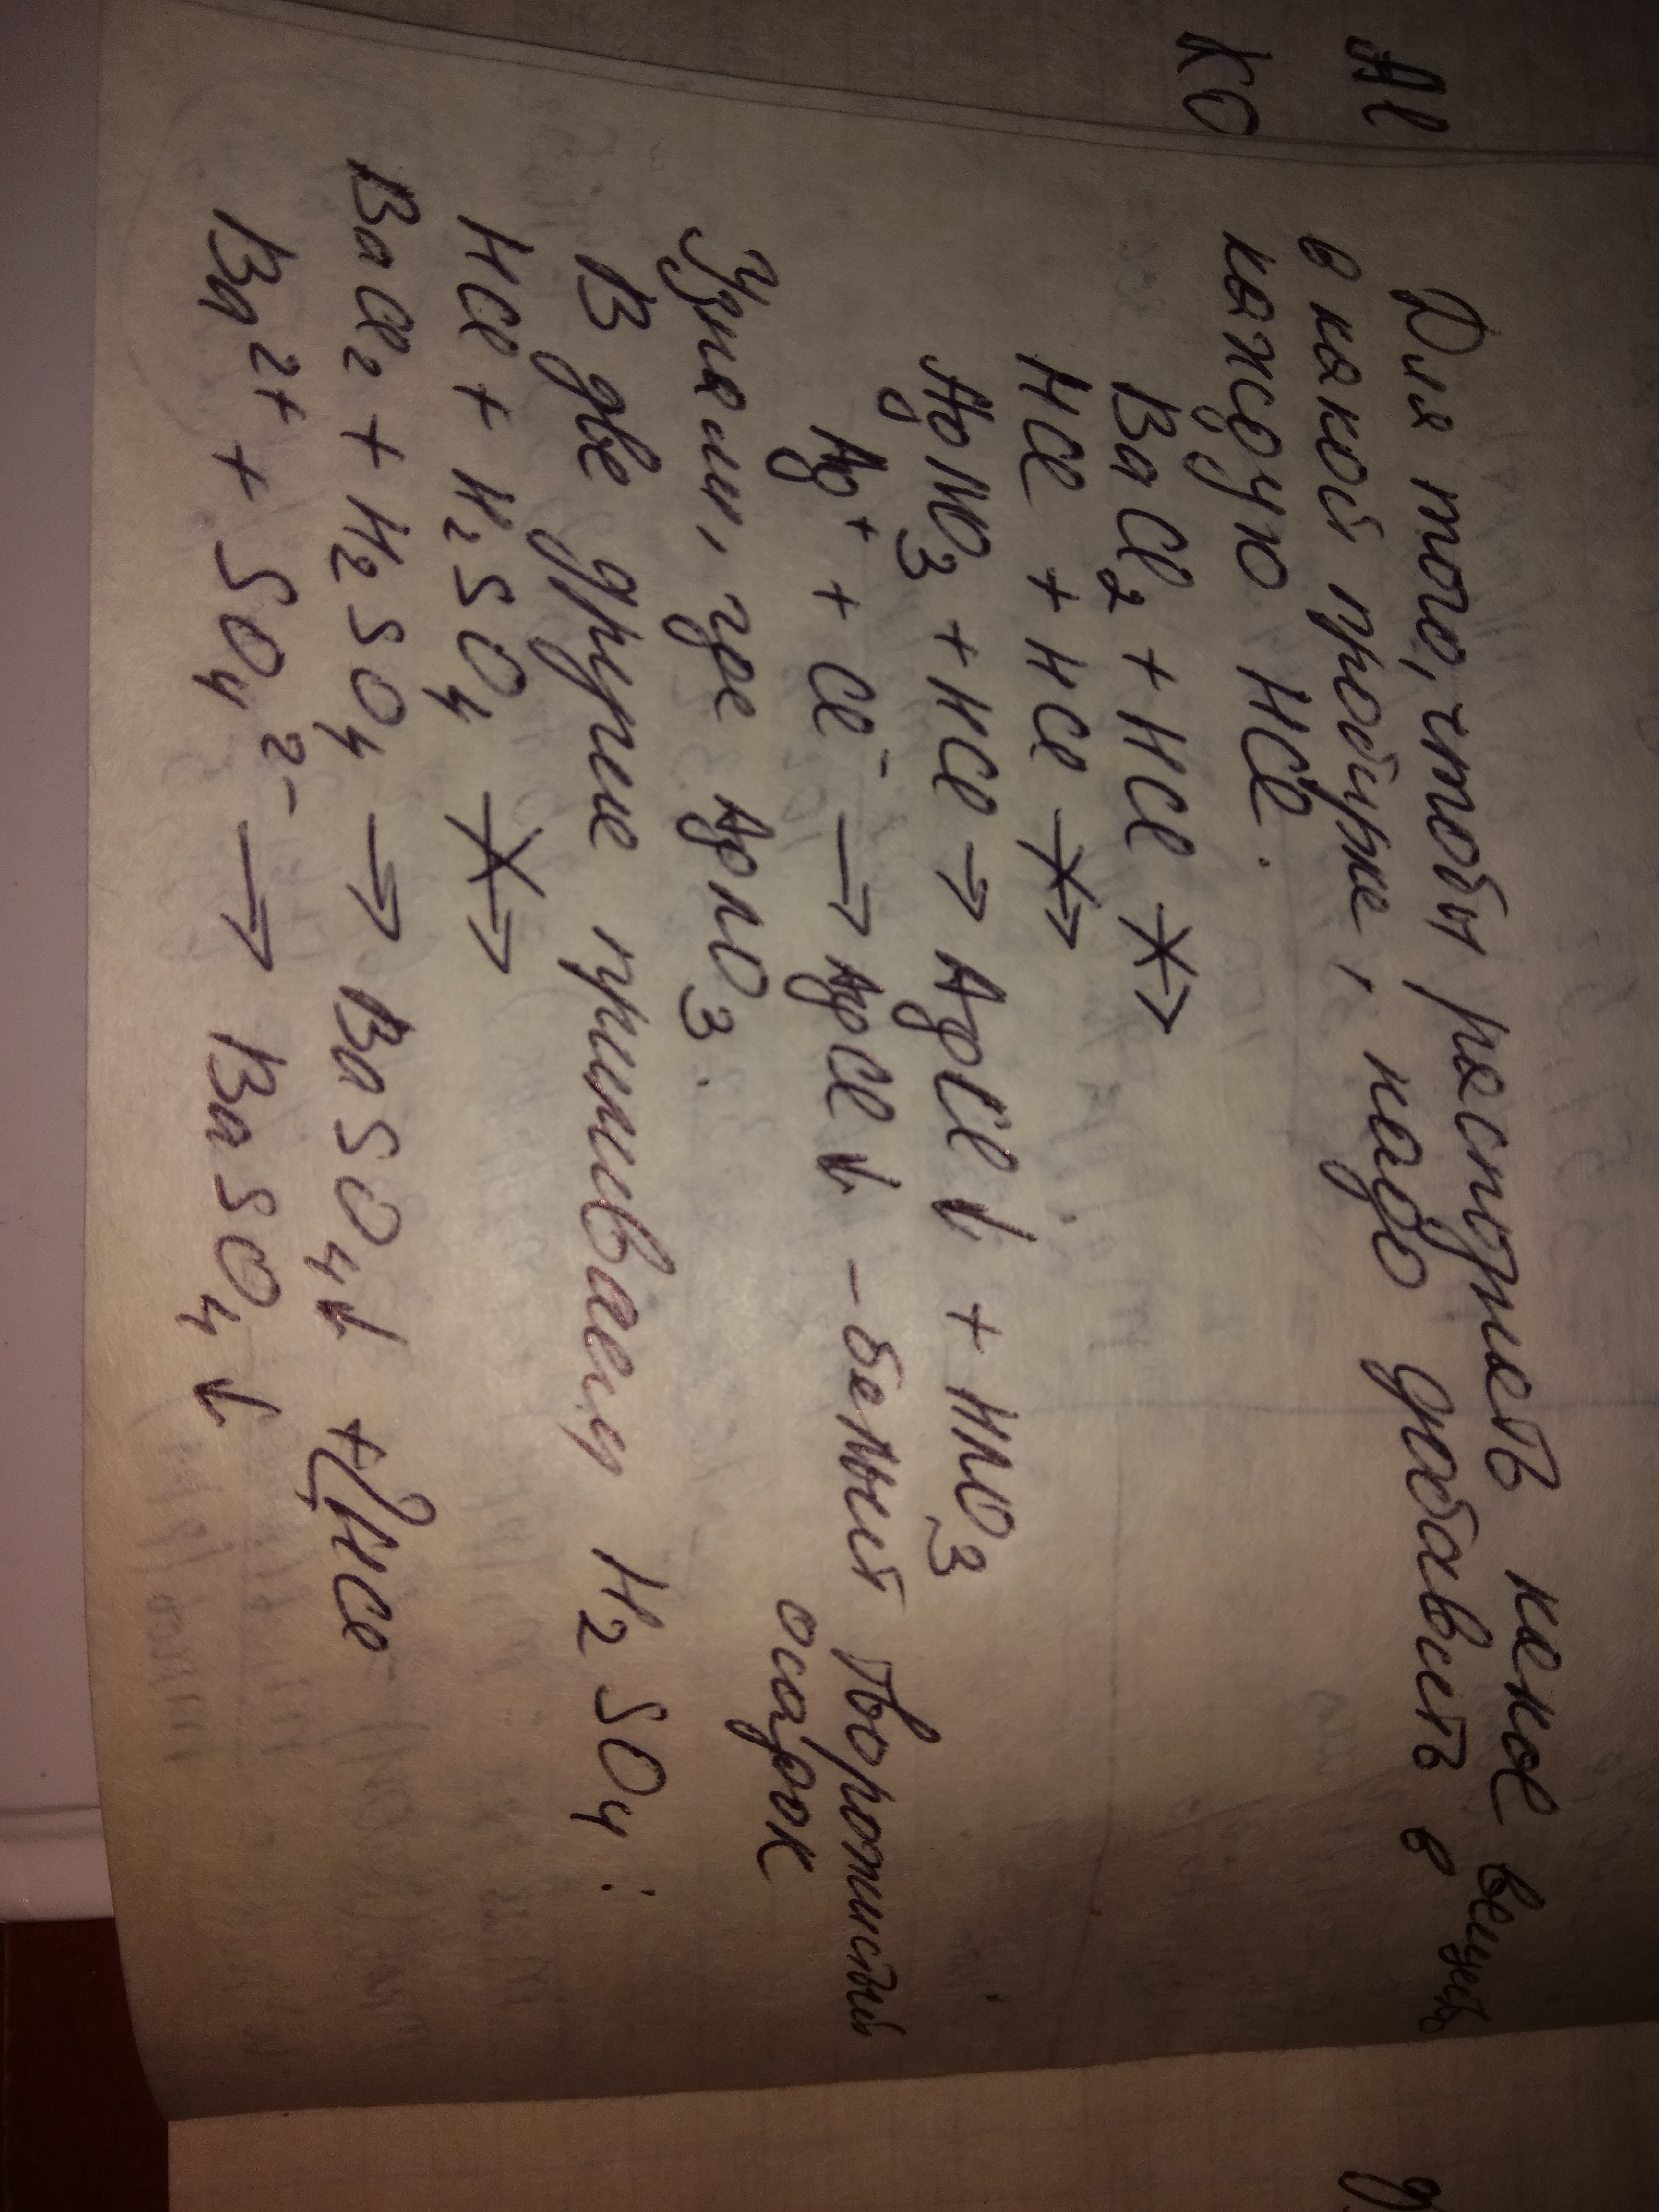 Al
КО
Для того, чтобы распознать какое вещ-ть
в какой пробирке, надо добавить в
каждую HCl.
BaCl₂ + HCl ↛
HCl + HCl ↛
AgNO₃ + HCl → AgCl↓ + HNO₃
Ag⁺ + Cl⁻ → AgCl↓ – белый творожистый
осадок
Узнали, где AgNO₃.
В две другие приливаем H₂SO₄:
HCl + H₂SO₄ ↛
BaCl₂ + H₂SO₄ → BaSO₄↓ + 2HCl
Ba²⁺ + SO₄²⁻ → BaSO₄↓